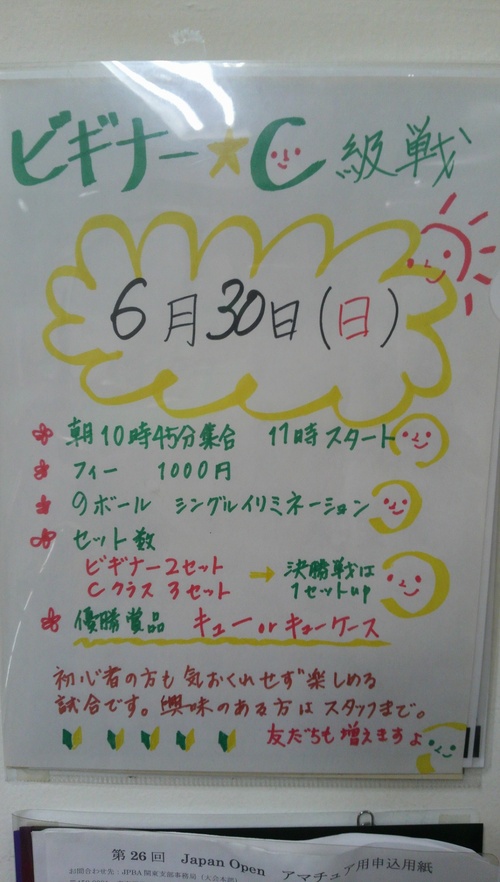 ビギナー★C級戦
6月30日(日)
朝10時45分集合 11時スタート
フィー 1000円
9ボール シングルイリミネーション
セット数
ビギナー2セット
Cクラス 3セット
→ 決勝戦は
1セットup
優勝賞品 キューorキューケース
初心者の方も気おくれせず楽しめる
試合です。興味のある方はスタッフまで。
友だちも増えますよ
第26回 Japan Open アマチュア用申込用紙
お問合わせ先:JPBA関東支部事務局(大会本部)